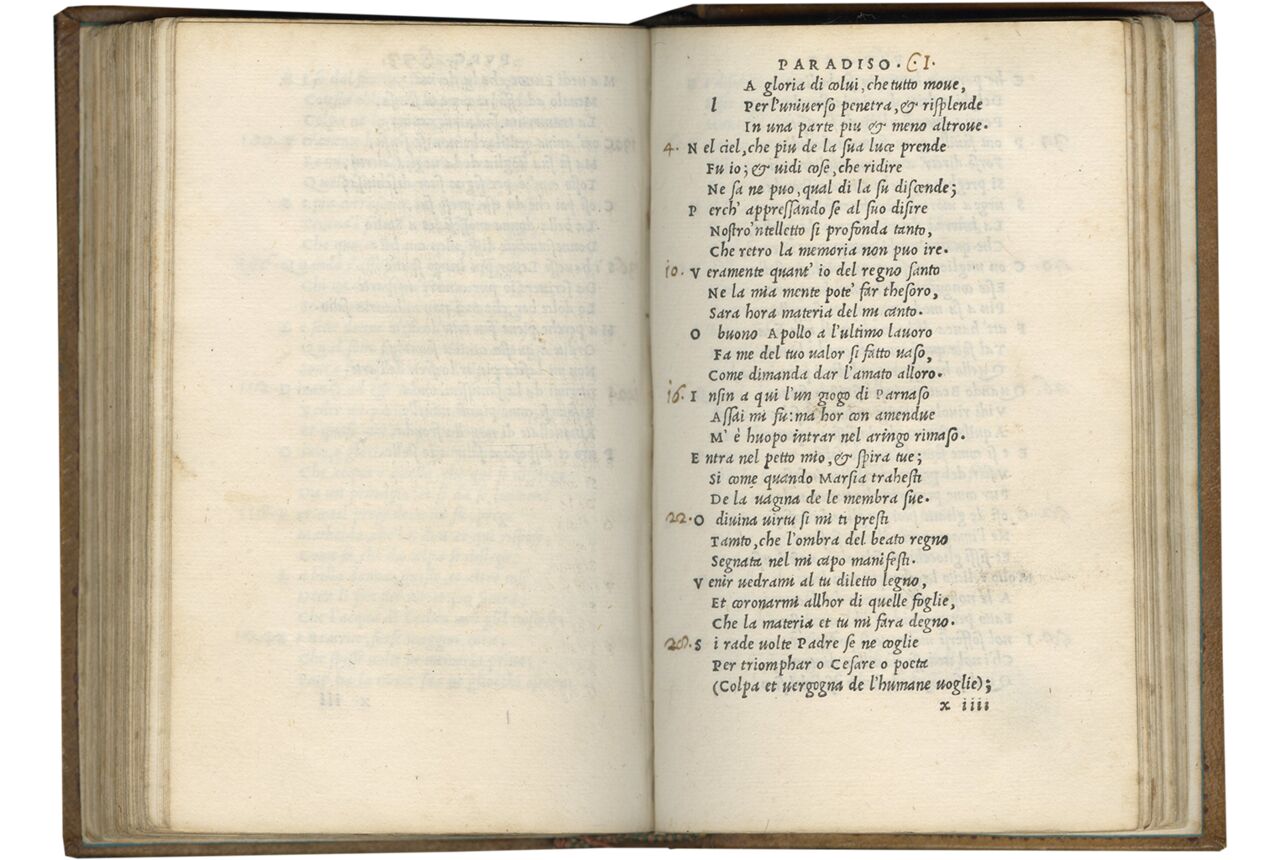 PARADISO. C I.
A gloria di colui, che tutto move,
l Per l'universo penetra, & risplende
In una parte piu & meno altroue.
4. N el ciel, che piu de la sua luce prende
Fu io; & uidi cose, che ridire
Ne sa ne puo, qual di la su discende;
P erch' appressando se al suo disire
Nostro 'ntelletto si profonda tanto,
Che retro la memoria non puo ire.
10. V eramente quant' io del regno santo
Ne la mia mente pote' far thesoro,
Sara hora materia del mi canto.
O buono Apollo a l'ultimo lauoro
Fa me del tuo ualor si fatto uaso,
Come dimanda dar l'amato alloro.
16. I nsin a qui l'un giogo di Parnaso
Assai mi fu: ma hor con amendue
M' è huopo intrar nel aringo rimaso.
E ntra nel petto mio, & spira tue;
Si come quando Marsia trahesti
De la uagina de le membra sue.
22. O diuina uirtu si mi ti presti
Tamto, che l'ombra del beato regno
Segnata nel mi capo manifesti.
V enir uedrami al tu diletto legno,
Et coronarmi allhor di quelle foglie,
Che la materia et tu mi fara degno.
28. S i rade uolte Padre se ne coglie
Per triomphar o Cesare o poeta
(Colpa et uergogna de l'humane uoglie);
x iiii